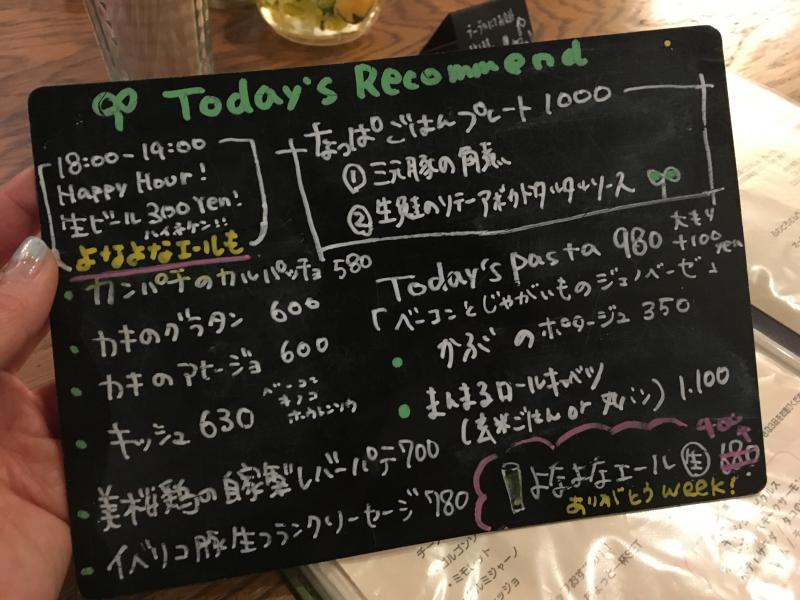 Today's Recommend
18:00-19:00
Happy Hour!
生ビール 300 Yen!
ハイネケン!!
よなよなエールも
なっぱごはんプレート 1000
① 三元豚の角煮
② 生鮭のソテーアボカドタルタルソース
カンパチのカルパッチョ 580
カキのグラタン 600
カキのアヒージョ 600
キッシュ 630
ベーコン
キノコ
ホウレンソウ
美桜鶏の自家製レバーパテ 700
イベリコ豚生フランクソーセージ 780
Today's pasta 980
大もり
+100
yen
「ベーコンとじゃがいものジェノベーゼ」
かぶのポタージュ 350
まんまるロールキャベツ
(玄米ごはん or 丸パン) 1.100
よなよなエール 生
400
ありがとう week!
ミモレット